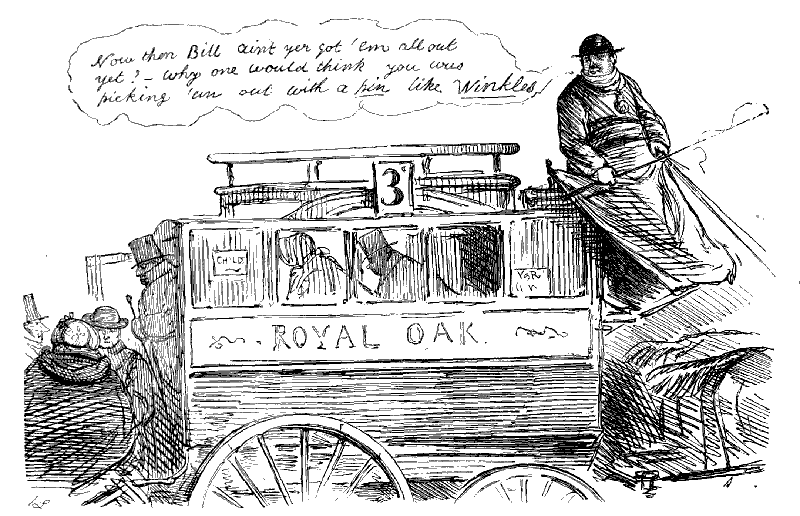 Now then Bill aint yer got 'em all out
yet? – Why one would think you was
picking 'em out with a pin like Winkles!
3d
CHILD
ROYAL OAK.